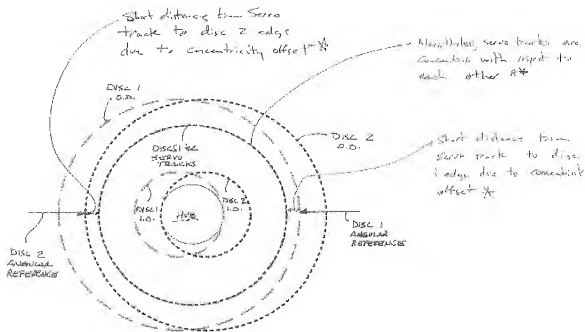 Short distance from Servo
track to disc 2 edge
due to concentricity offset *
Nonetheless, servo tracks are
concentric with respect to
each other **
DISC 1
O.D.
DISC 2
O.D.
DISCS 1 & 2
SERVO
TRACKS
Short distance from
servo track to disc
1 edge due to concentricity
offset *
DISC 1
I.D.
HUB
DISC 2
I.D.
DISC 2
ANGULAR
REFERENCE
DISC 1
ANGULAR
REFERENCE